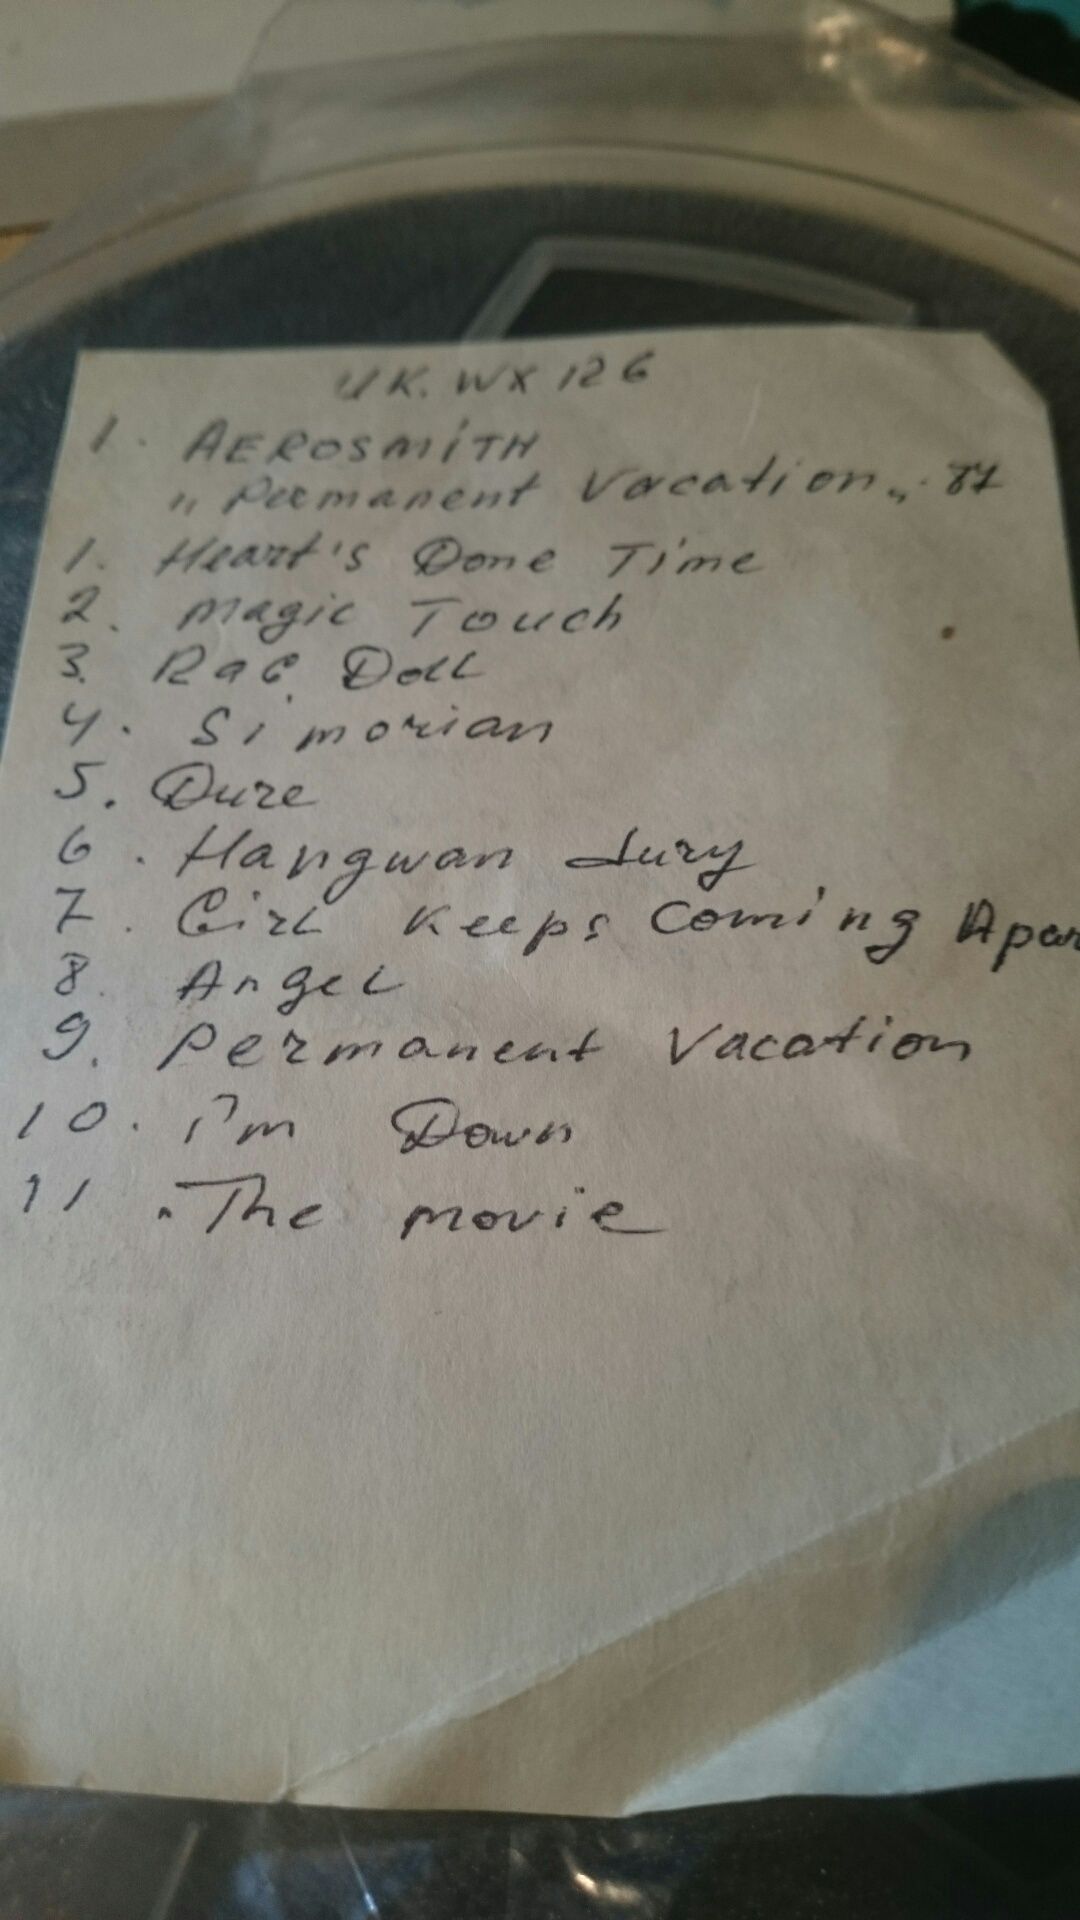 UK. WX 126
1. AEROSMITH
„Permanent Vacation„. 87
1. Heart's Done Time
2. Magic Touch
3. Rag Doll
4. Simorian
5. Dure
6. Hangwan Jury
7. Girl Keeps Coming Apar
8. Angel
9. Permanent Vacation
10. i'm Down
11. The movie